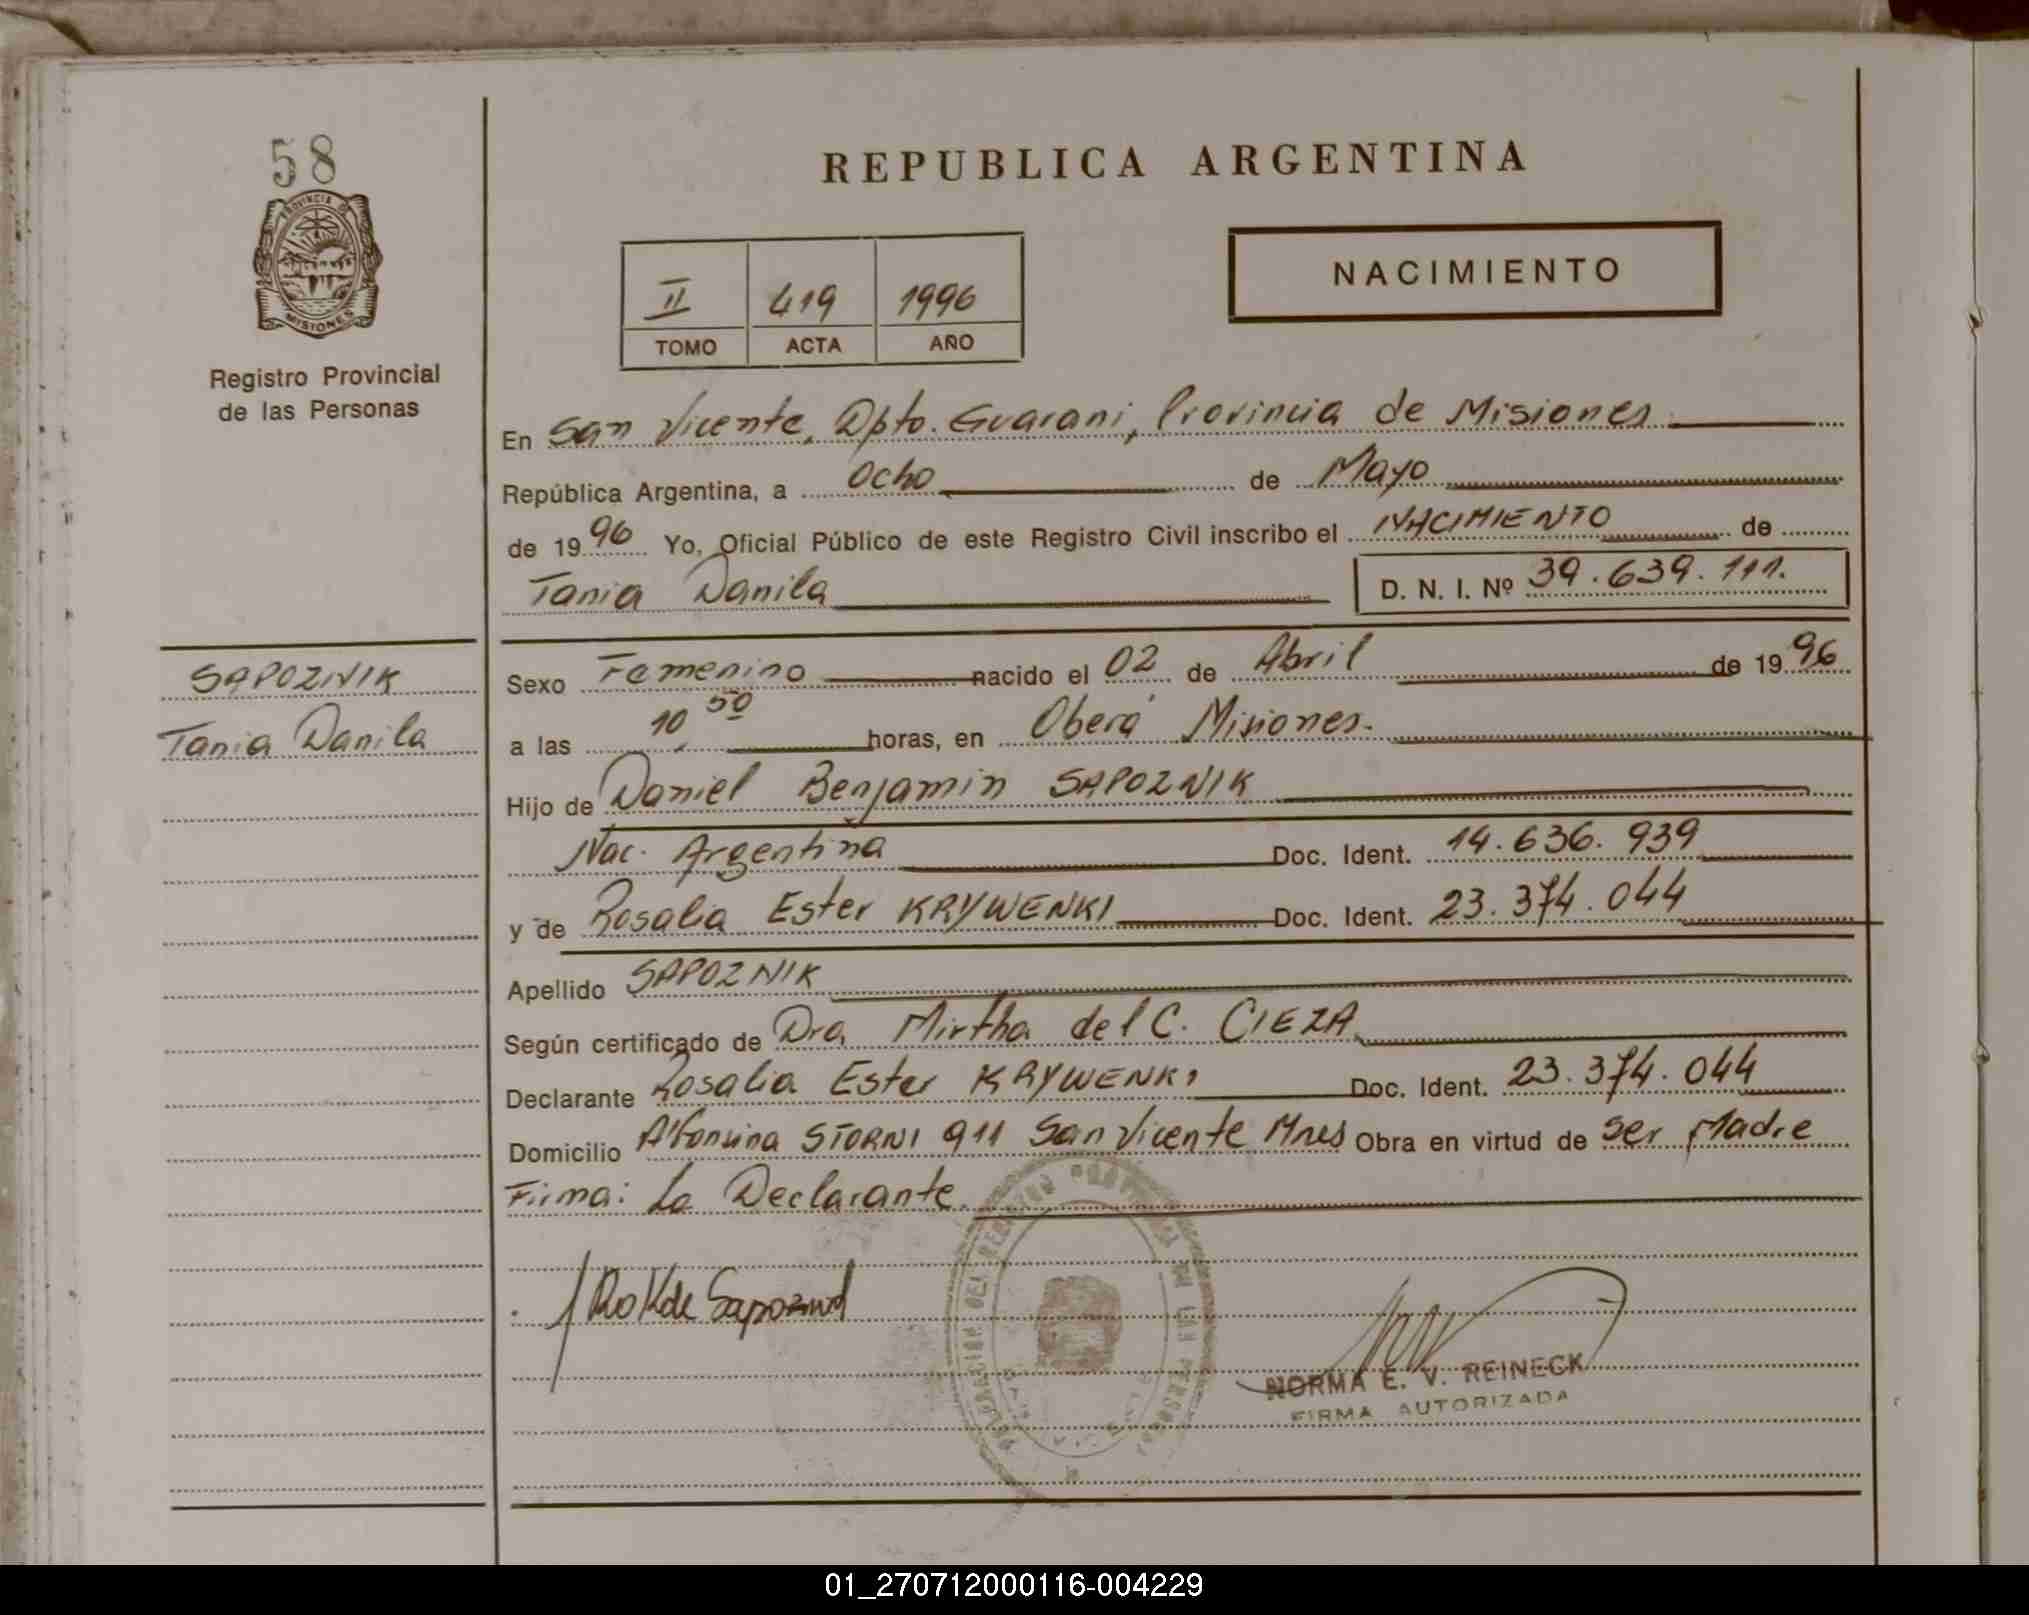 58
PROVINCIA DE
MISIONES
Registro Provincial
de las Personas
REPUBLICA ARGENTINA
II 419 1996
TOMO ACTA AÑO
NACIMIENTO
En San Vicente, Dpto. Guarani, Provincia de Misiones
República Argentina, a Ocho de Mayo
de 1996 Yo, Oficial Público de este Registro Civil inscribo el NACIMIENTO de
Tania Danila D. N. I. Nº 39.639.111.
SAPOZNIK
Tania Danila
Sexo Femenino nacido el 02 de Abril de 1996
a las 10 50 horas, en Oberá Misiones.
Hijo de Daniel Benjamin SAPOZNIK
Nac. Argentina Doc. Ident. 14.636.939
y de Rosalia Ester KRYWENKI Doc. Ident. 23.374.044
Apellido SAPOZNIK
Según certificado de Dra Mirtha del C. CIEZA
Declarante Rosalia Ester KRYWENKI Doc. Ident. 23.374.044
Domicilio Alfonsina STORNI 911 San Vicente Mnes Obra en virtud de ser Madre
Firma: La Declarante.
NORMA E. V. REINECK
FIRMA AUTORIZADA
01_270712000116-004229